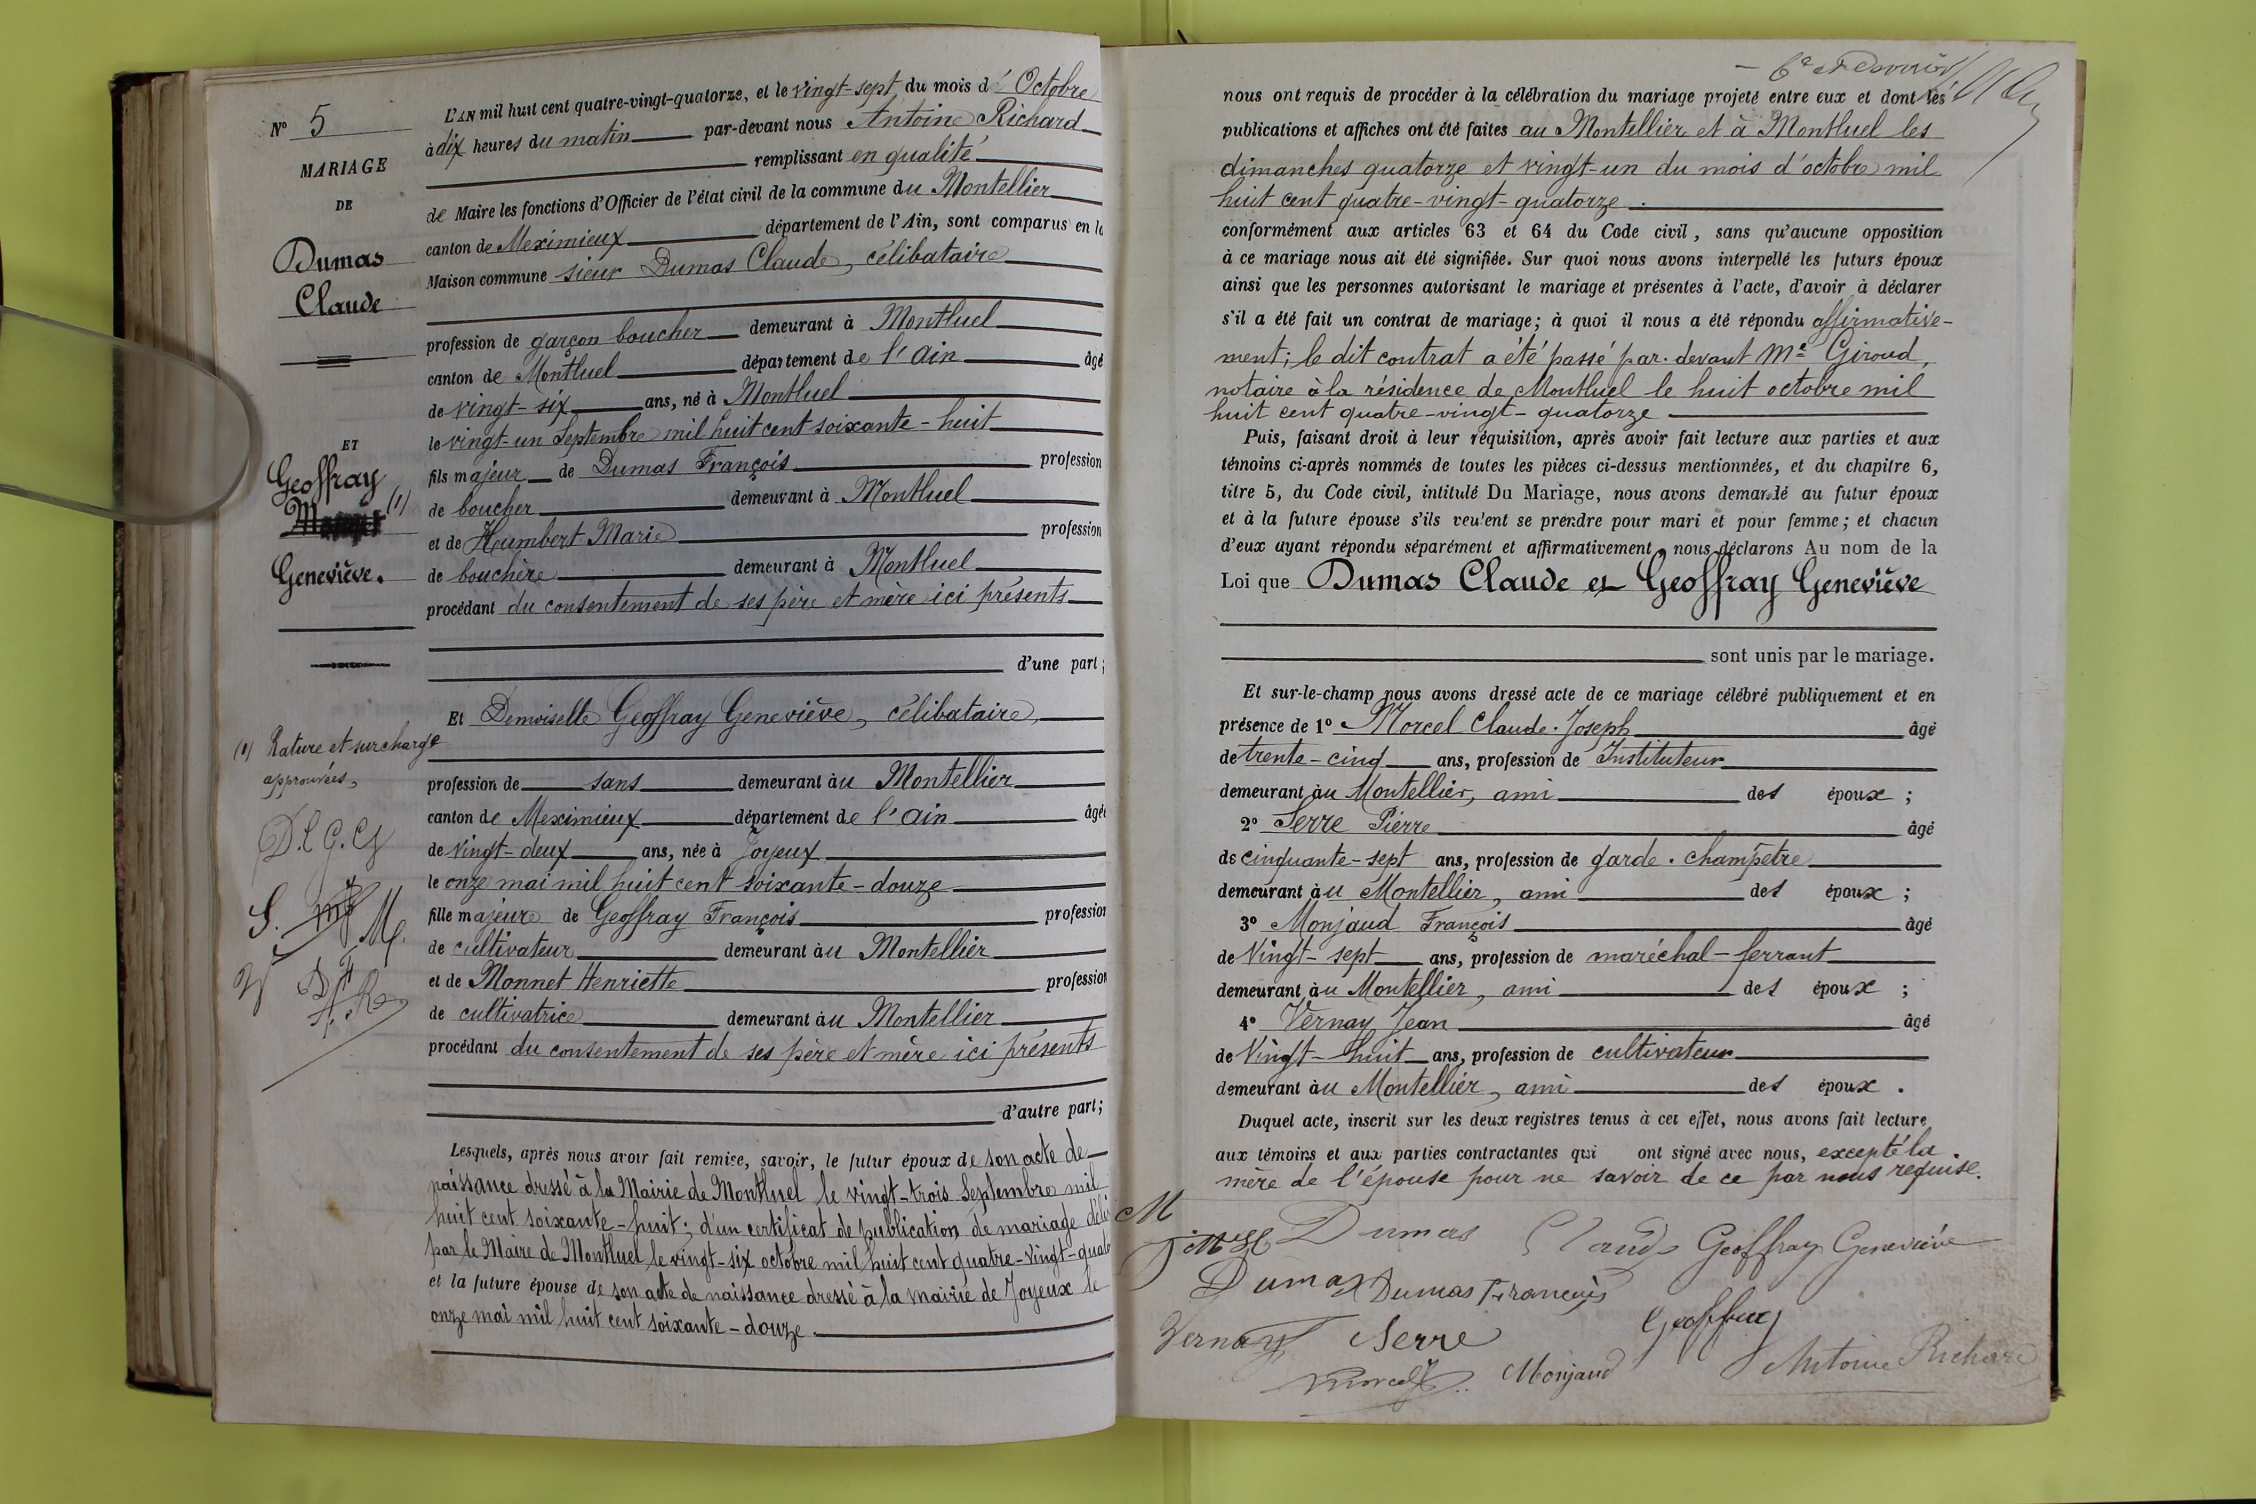 N° 5
MARIAGE
DE
Dumas
Claude
ET
Geoffray
(1)
Geneviève.
(1) Rature et surcharge
approuvées,
D.C G.G
S. M.
V D.F
A.R
L'AN mil huit cent quatre-vingt-quatorze, et le vingt-sept du mois d'Octobre
à dix heures du matin par-devant nous Antoine Richard
remplissant en qualité
de Maire les fonctions d'Officier de l'état civil de la commune du Montellier
canton de Meximieux département de l'Ain, sont comparus en la
Maison commune sieur Dumas Claude, célibataire
profession de garçon boucher demeurant à Montluel
canton de Montluel département de l'Ain âgé
de vingt-six ans, né à Montluel
le vingt-un Septembre mil huit cent soixante-huit
fils majeur de Dumas François profession
de boucher demeurant à Montluel
et de Humbert Marie profession
de bouchère demeurant à Montluel
procédant du consentement de ses père et mère ici présents
d'une part;
Et Demoiselle Geoffray Geneviève, célibataire,
profession de sans demeurant àu Montellier
canton de Meximieux département de l'Ain âgée
de vingt-deux ans, née à Joyeux
le onze mai mil huit cent soixante-douze
fille majeure de Geoffray François profession
de cultivateur demeurant àu Montellier
et de Monnet Henriette profession
de cultivatrice demeurant àu Montellier
procédant du consentement de ses père et mère ici présents
d'autre part;
Lesquels, après nous avoir fait remise, savoir, le futur époux de son acte de
naissance dressé à la Mairie de Montluel le vingt-trois Septembre mil
huit cent soixante-huit; d'un certificat de publication de mariage déli
par le Maire de Montluel le vingt-six octobre mil huit cent quatre-vingt-quato
et la future épouse de son acte de naissance dressé à la mairie de Joyeux le
onze mai mil huit cent soixante-douze.
nous ont requis de procéder à la célébration du mariage projeté entre eux et dont les
publications et affiches ont été faites au Montellier et à Montluel les
dimanches quatorze et vingt-un du mois d'octobre mil
huit cent quatre-vingt-quatorze.
conformément aux articles 63 et 64 du Code civil, sans qu'aucune opposition
à ce mariage nous ait été signifiée. Sur quoi nous avons interpellé les futurs époux
ainsi que les personnes autorisant le mariage et présentes à l'acte, d'avoir à déclarer
s'il a été fait un contrat de mariage; à quoi il nous a été répondu affirmative-
ment; le dit contrat a été passé par-devant Me Giroud,
notaire à la résidence de Montluel le huit octobre mil
huit cent quatre-vingt-quatorze
Puis, faisant droit à leur réquisition, après avoir fait lecture aux parties et aux
témoins ci-après nommés de toutes les pièces ci-dessus mentionnées, et du chapitre 6,
titre 5, du Code civil, intitulé Du Mariage, nous avons demandé au futur époux
et à la future épouse s'ils veulent se prendre pour mari et pour femme; et chacun
d'eux ayant répondu séparément et affirmativement, nous déclarons Au nom de la
Loi que Dumas Claude et Geoffray Geneviève
sont unis par le mariage.
Et sur-le-champ nous avons dressé acte de ce mariage célébré publiquement et en
présence de 1° Morcel Claude-Joseph âgé
de trente-cinq ans, profession de Instituteur
demeurant àu Montellier, ami des époux;
2° Serre Pierre âgé
de cinquante-sept ans, profession de garde-champêtre
demeurant àu Montellier, ami des époux;
3° Monjaud François âgé
de Vingt-sept ans, profession de maréchal-ferrant
demeurant àu Montellier, ami des époux;
4° Vernay Jean âgé
de Vingt-huit ans, profession de cultivateur
demeurant àu Montellier, ami des époux.
Duquel acte, inscrit sur les deux registres tenus à cet effet, nous avons fait lecture
aux témoins et aux parties contractantes qui ont signé avec nous, excepté la
mère de l'épouse pour ne savoir de ce par nous requise.
Dumas Claude Geoffray Geneviève
Dumas Dumas François
Geoffray
Vernay Serre
Morcel Monjaud Antoine Richard